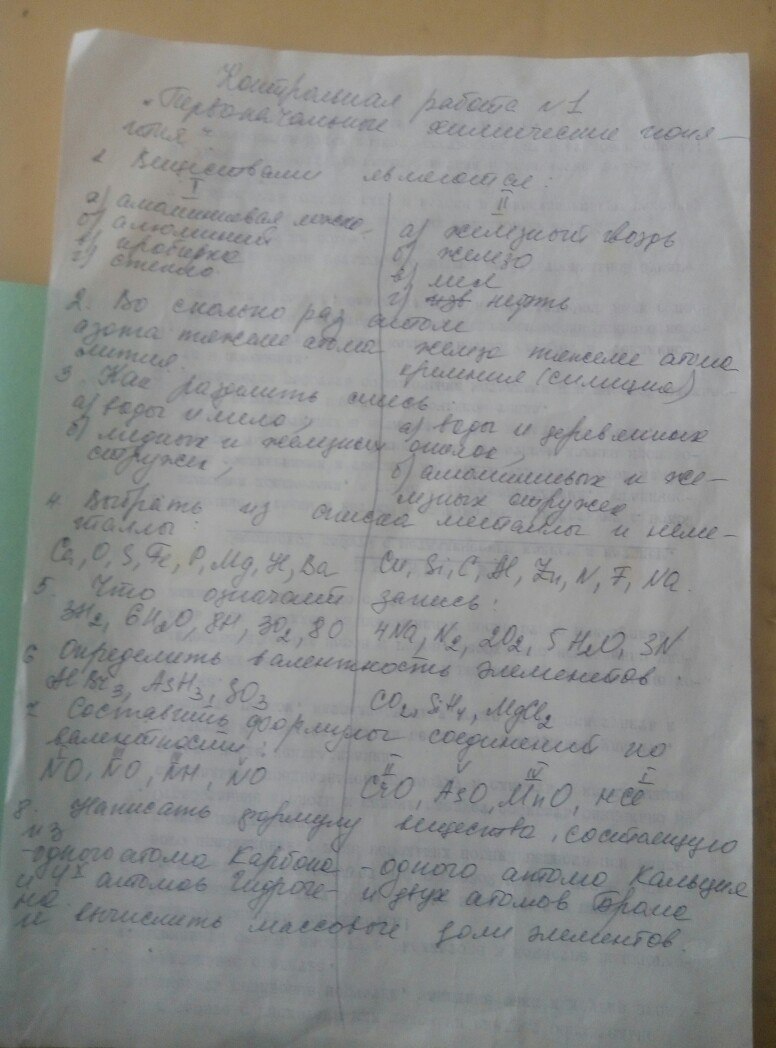 Контрольная работа N1
"Первоначальные химические поня-
тия"
1. Веществами являются:
I II
а) алюминиевая ложка, а) железный гвоздь
б) алюминий б) железо
в) пробирка в) мел
г) стекло г) нефть
2. Во сколько раз атом
азота тяжелее атома железа тяжелее атома
лития. кремния (силиция)
3. Как разделить смесь:
а) воды и мела, а) воды и деревянных
б) медных и железных опилок,
стружек, б) алюминиевых и же-
лезных стружек.
4. Выбрать из списка металлы и неме-
таллы:
Ca, O, S, Fe, P, Mg, H, Ba Cu, Si, C, Al, Zn, N, F, Na.
5. Что означает запись:
3H2, 6H2O, 8H, 3O2, 8O 4Na, N2, 2O2, 5H2O, 3N
6 Определить валентность элементов:
AlBr3, AsH3, SO3 CO2, SiH4, MgCl2
7 Составить формулы соединений по
валентности:
NO, NO, NH, NO II IV I
CrO, AsO, MnO, HCl
8. Написать формулу вещества, состоящую
из
-одного атома Карбона -одного атома Кальция
и атомов Гидроге- и двух атомов Брома
на
и вычислить массовые доли элементов.